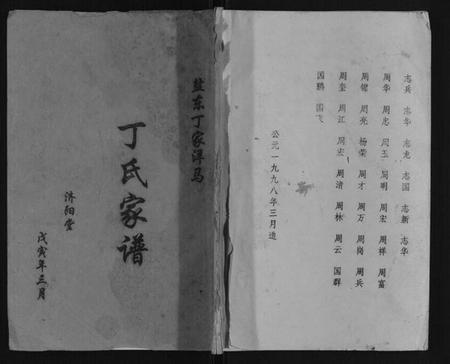 盐东丁家洋马
丁氏家谱
济阳堂
戊寅年三月
志兵 志华 志龙 志国 志新 志华
周华 周忠 周玉 周明 周宏 周祥 周富
周锦 周亮 杨荣 周才 周万 周岗 周兵
周奎 周江 周宏 周清 周林 周云 国群
国鹏 国飞
公元一九九八年三月造